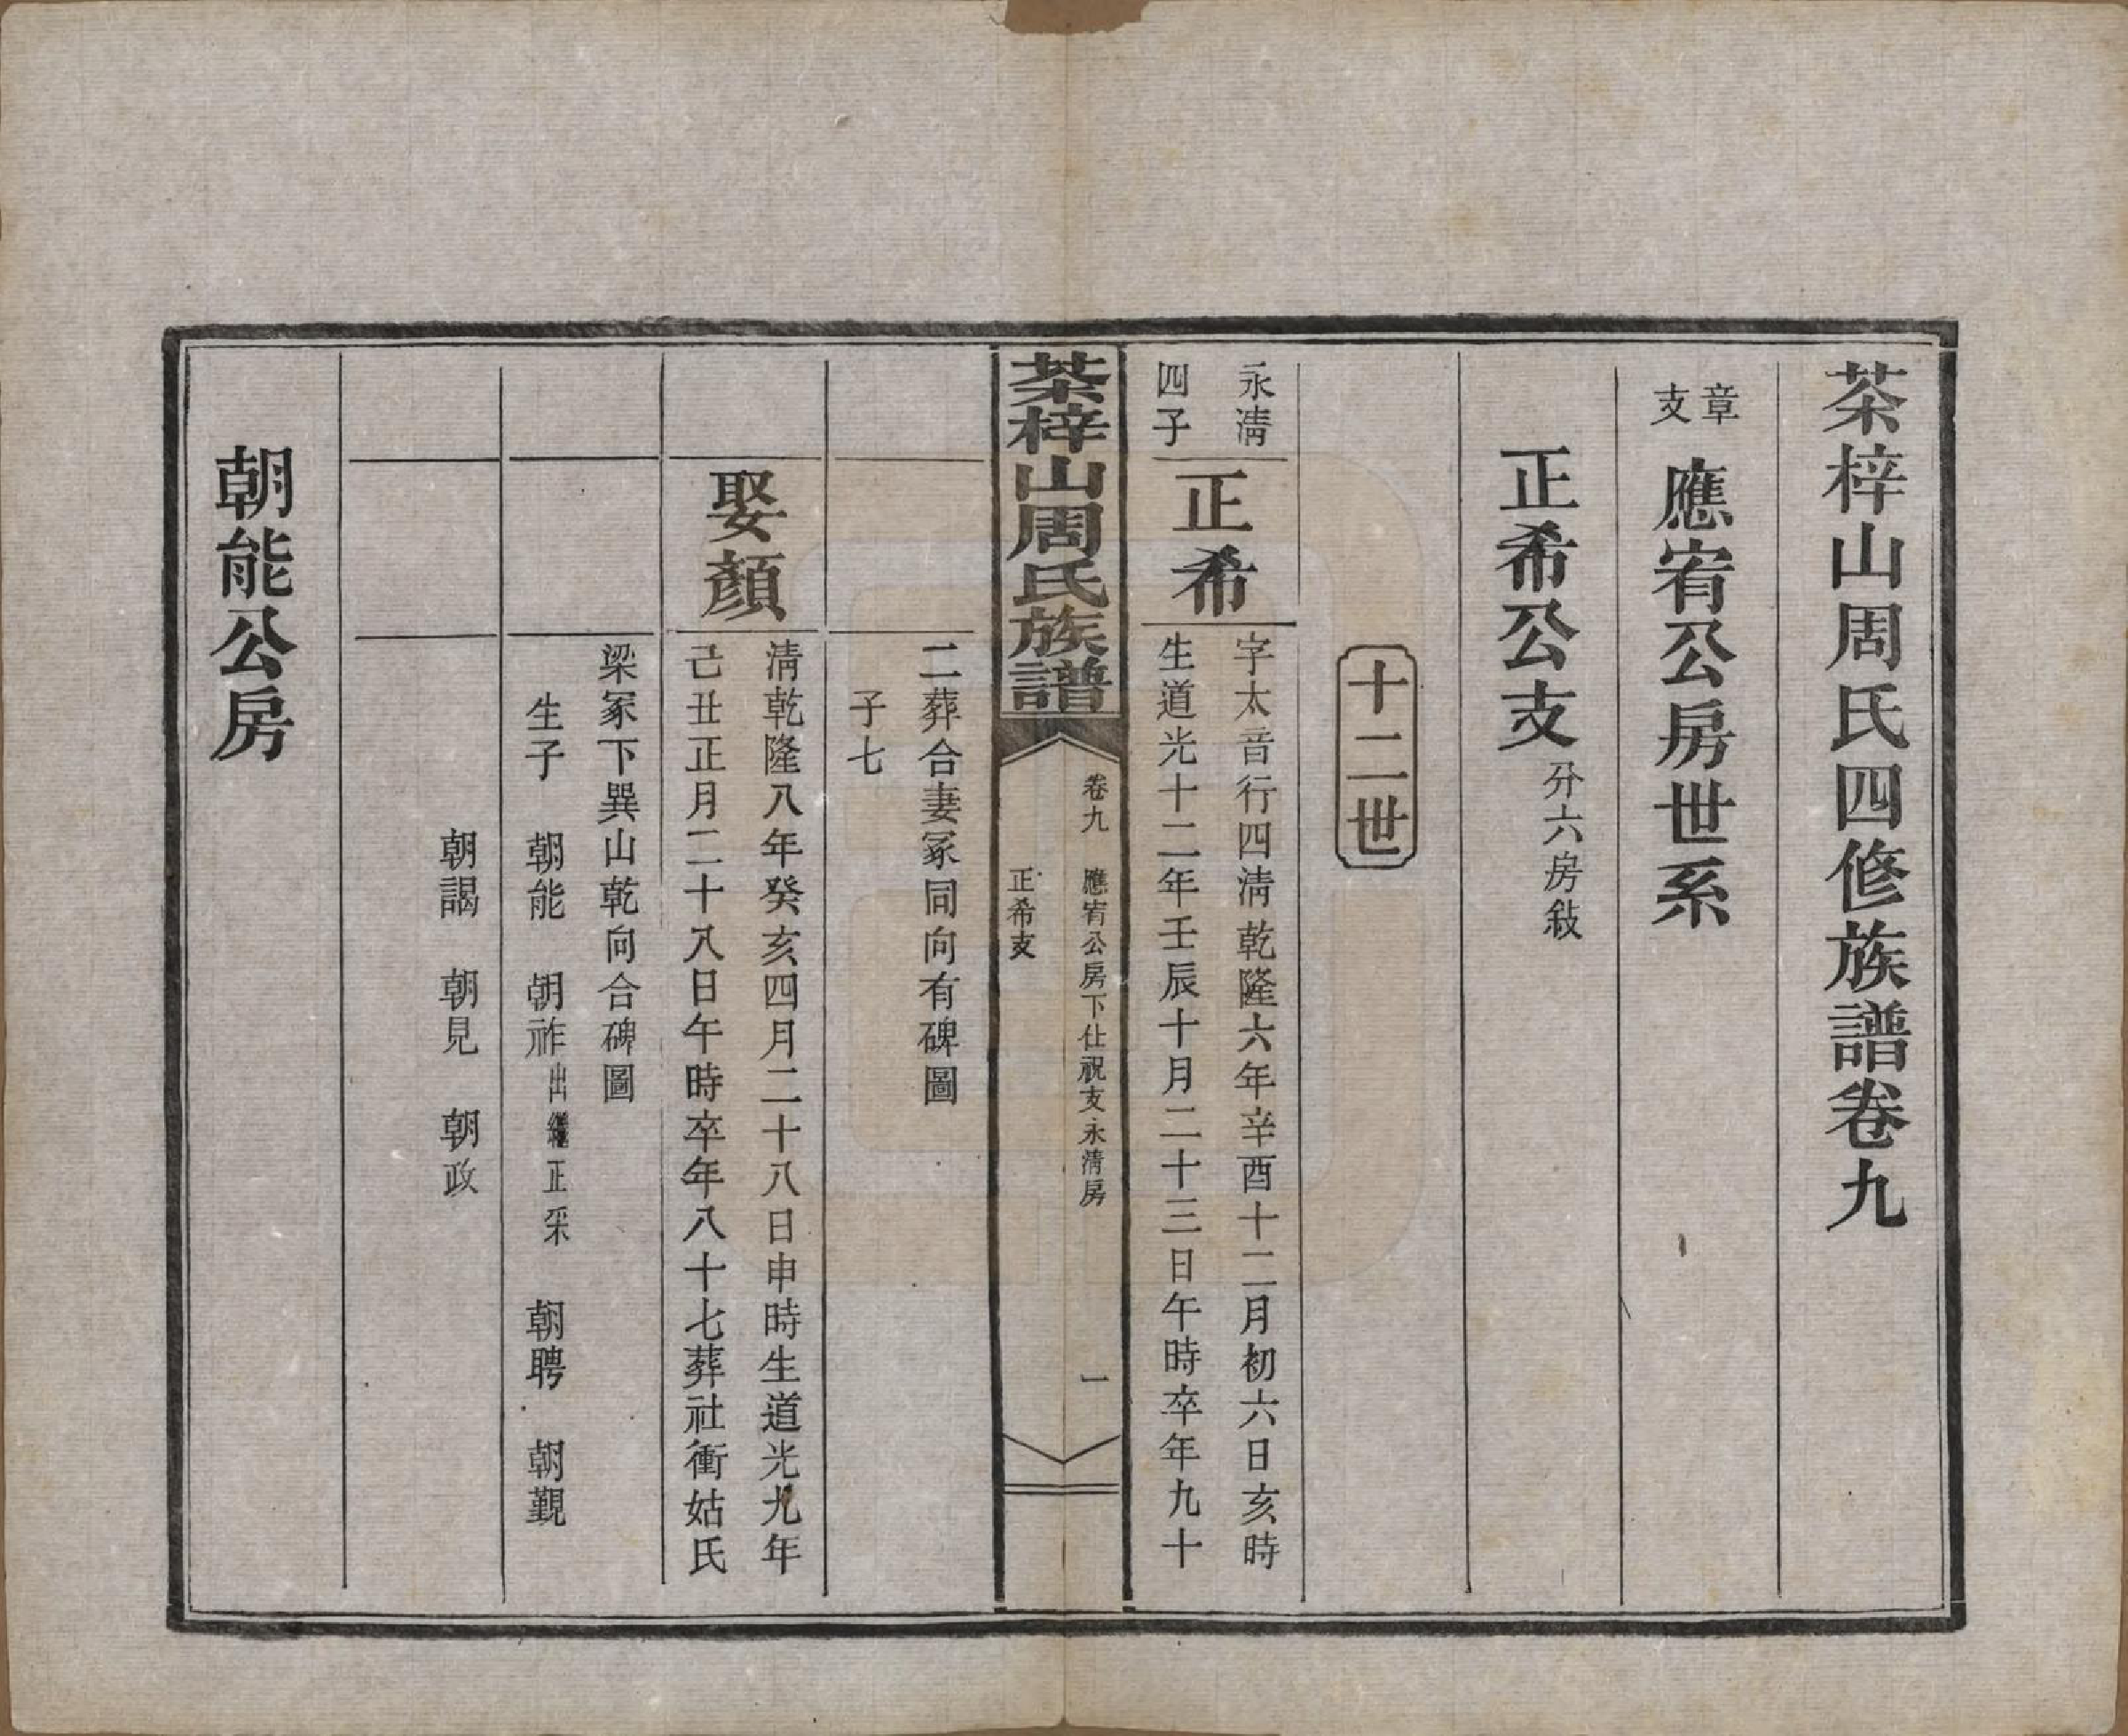 茶梓山周氏四修族譜卷九
章支
應宥公房世系
正希公支分六房敍
十二世
永淸四子
正希
字太音行四淸乾隆六年辛酉十二月初六日亥時
生道光十二年壬辰十月二十三日午時卒年九十
茶梓山周氏族譜
卷九
應宥公房下仕祝支永淸房
正希支
一
二葬合妻冢同向有碑圖
子七
娶顏
淸乾隆八年癸亥四月二十八日申時生道光九年
己丑正月二十八日午時卒年八十七葬社衝姑氏
梁冢下巽山乾向合碑圖
生子 朝能 朝祚出繼正采 朝聘 朝覲
朝謁 朝見 朝政
朝能公房